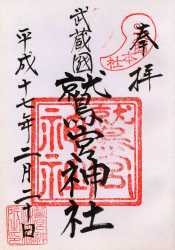 奉拝
武蔵国
鷲宮神社
鷲宮神社
平成十七年二月二十日